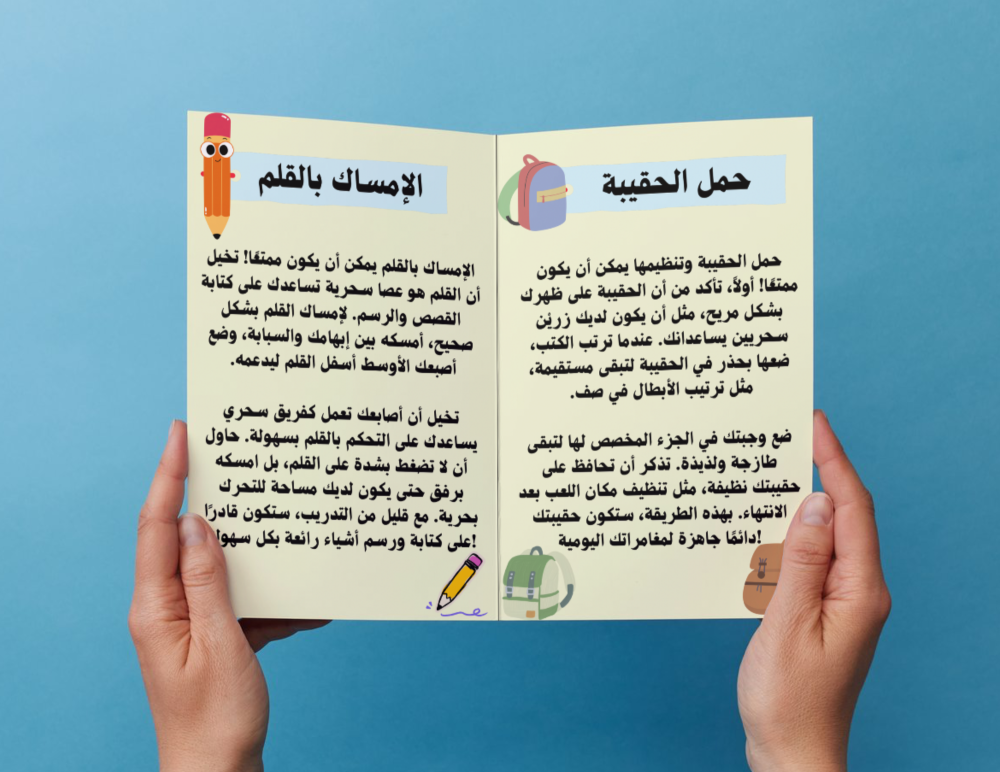 حمل الحقيبة
حمل الحقيبة وتنظيمها يمكن أن يكون
ممتعًا! أولاً، تأكد من أن الحقيبة على ظهرك
بشكل مريح، مثل أن يكون لديك زرين
سحريين يساعدانك. عندما ترتب الكتب،
ضعها بحذر في الحقيبة لتبقى مستقيمة،
مثل ترتيب الأبطال في صف.
ضع وجبتك في الجزء المخصص لها لتبقى
طازجة ولذيذة. تذكر أن تحافظ على
حقيبتك نظيفة، مثل تنظيف مكان اللعب بعد
الانتهاء. بهذه الطريقة، ستكون حقيبتك
!دائمًا جاهزة لمغامراتك اليومية
الإمساك بالقلم
الإمساك بالقلم يمكن أن يكون ممتعًا! تخيل
أن القلم هو عصا سحرية تساعدك على كتابة
القصص والرسم. لإمساك القلم بشكل
صحيح، أمسكه بين إبهامك والسبابة، وضع
أصبعك الأوسط أسفل القلم ليدعمه.
تخيل أن أصابعك تعمل كفريق سحري
يساعدك على التحكم بالقلم بسهولة. حاول
أن لا تضغط بشدة على القلم، بل امسكه
برفق حتى يكون لديك مساحة للتحرك
بحرية. مع قليل من التدريب، ستكون قادرًا
!على كتابة ورسم أشياء رائعة بكل